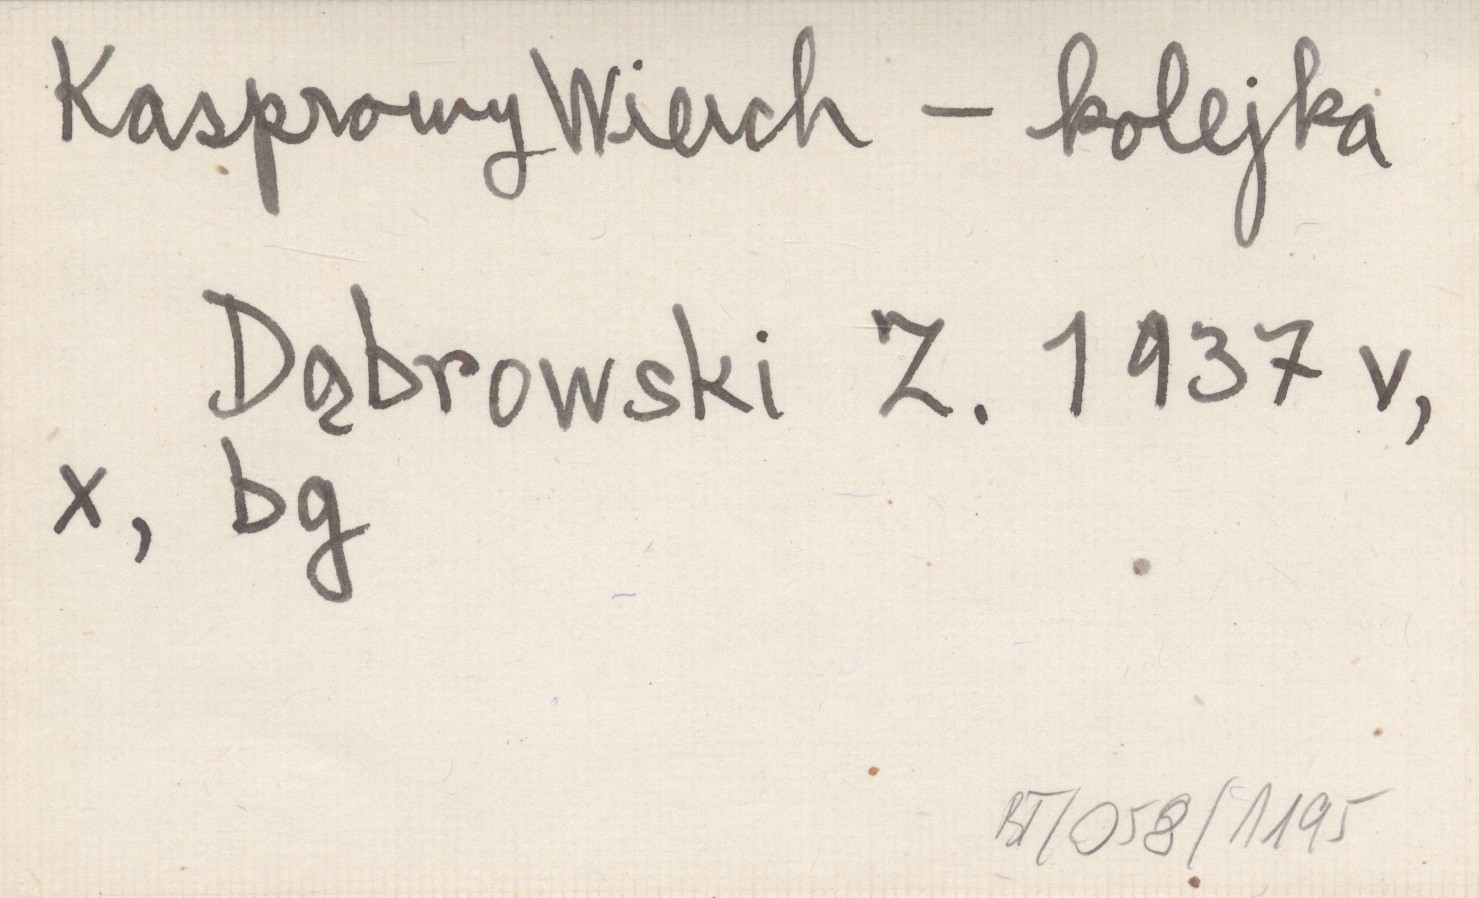 Kasprowy Wierch – kolejka
Dąbrowski Z. 1937 v,
x, bg
BT/058/1195